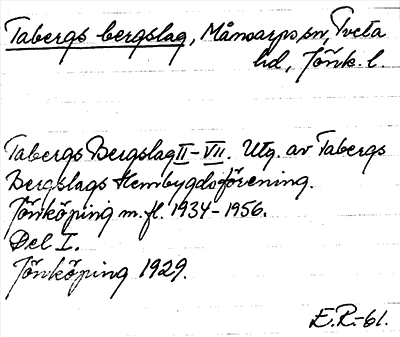 Tabergs bergslag, Månsarps sn, Tveta
hd, Jönk. l.
Tabergs Bergslag II-VII. Utg. av Tabergs
Bergslags Hembygdsförening.
Jönköping m.fl. 1934-1956.
Del I.
Jönköping 1929.
E.R.-61.